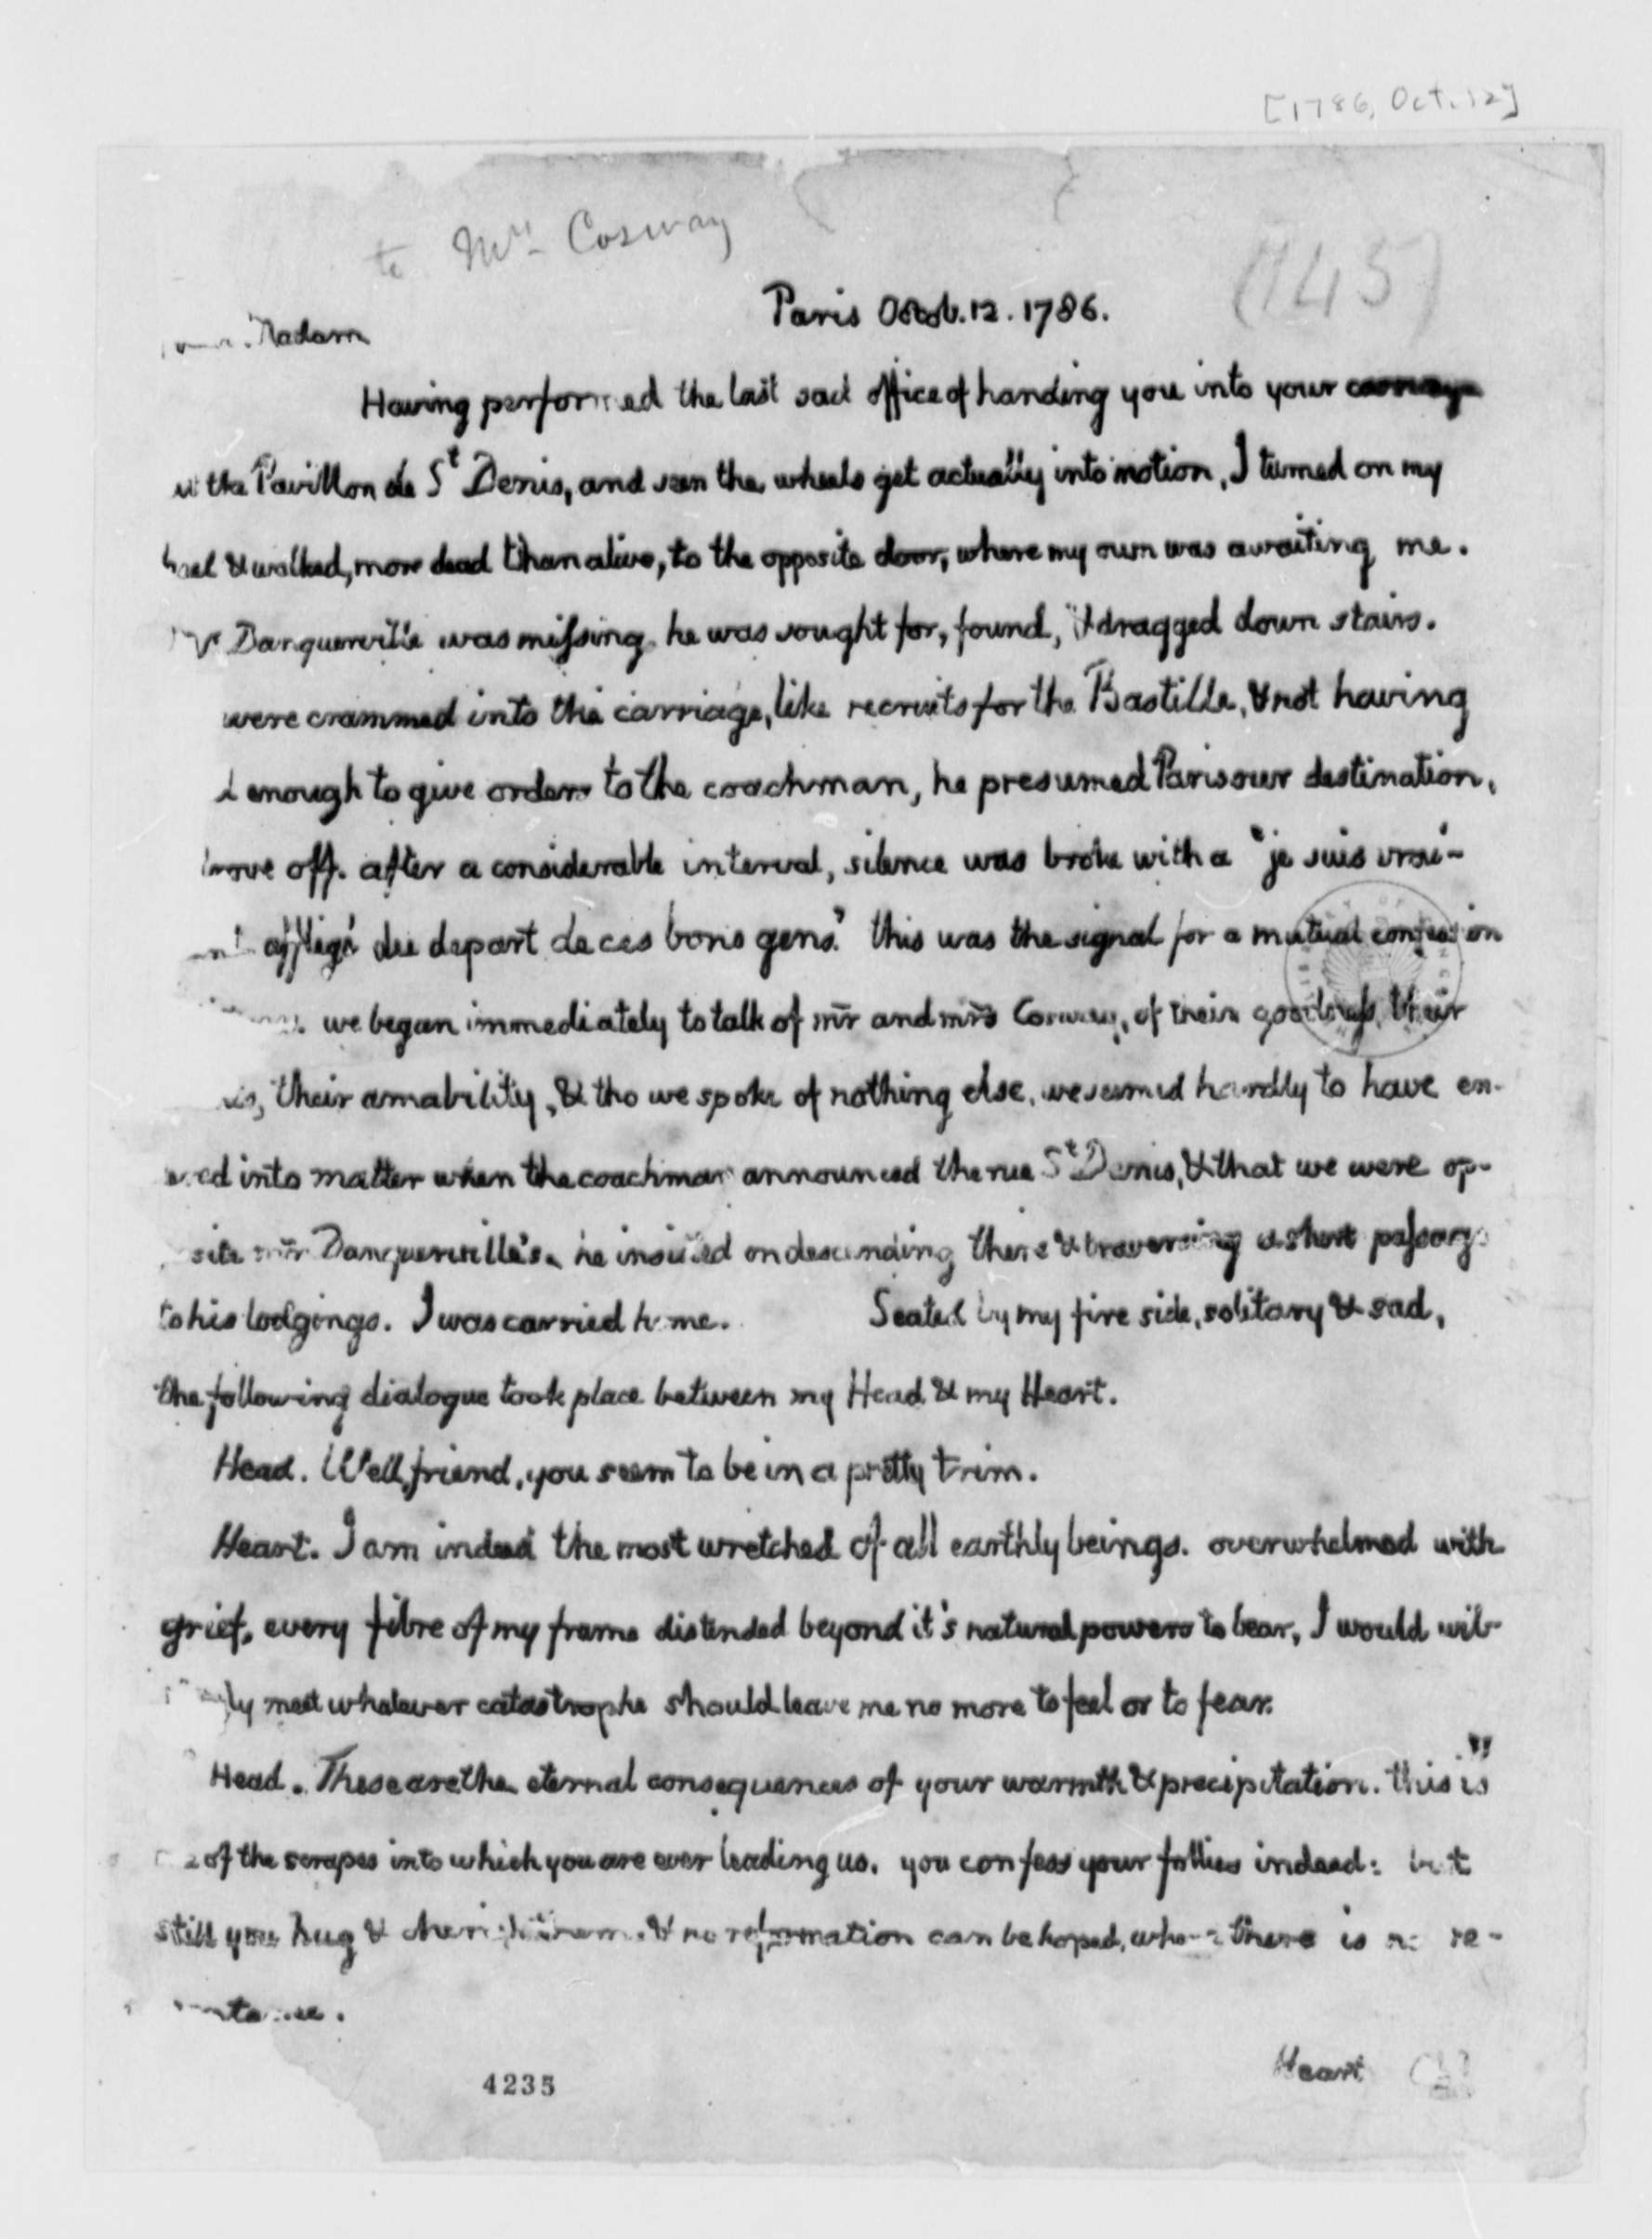 [1786, Oct. 12]
to Mrs. Cosway
(145)
Paris Octob. 12. 1786.
Madam
Having performed the last sad office of handing you into your carriage
at the Pavillon de St Denis, and seen the wheels get actually into motion, I turned on my
heel & walked, more dead than alive, to the opposite door, where my own was awaiting me.
Mr Danquerville was missing. he was sought for, found, & dragged down stairs.
were crammed into the carriage, like recruits for the Bastille, & not having
enough to give orders to the coachman, he presumed Paris our destination,
drove off. after a considerable interval, silence was broke with a "je suis vrai-
affligé du depart de ces bons gens." this was the signal for a mutual confession
we began immediately to talk of mr and mrs Cosway, of their goodness, their
their amability, & tho we spoke of nothing else, we seemed hardly to have en-
ered into matter when the coachman announced the rue St Denis, & that we were op-
site mr Danquerville's. he insisted on descending there & traversing a short passage
to his lodgings. I was carried home. Seated by my fire side, solitary & sad,
the following dialogue took place between my Head & my Heart.
Head. Well, friend, you seem to be in a pretty trim.
Heart. I am indeed the most wretched of all earthly beings. overwhelmed with
grief, every fibre of my frame distended beyond it's natural powers to bear, I would wil-
ly meet whatever catastrophe should leave me no more to feel or to fear.
Head. These are the eternal consequences of your warmth & precipitation. this is
of the scrapes into which you are ever leading us. you confess your follies indeed: but
still you hug & cherish them, & no reformation can be hoped, where there is no re-
Heart
4235